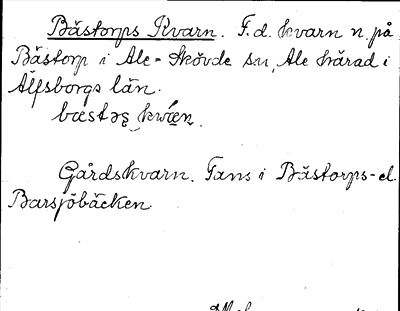 Bästorps Kvarn. F.d. kvarn n. på
Bästorp i Ale-Skövde sn, Ale härad i
Älfsborgs län.
Gårdskvarn. Fans i Bästorps- el.
Barsjöbäcken